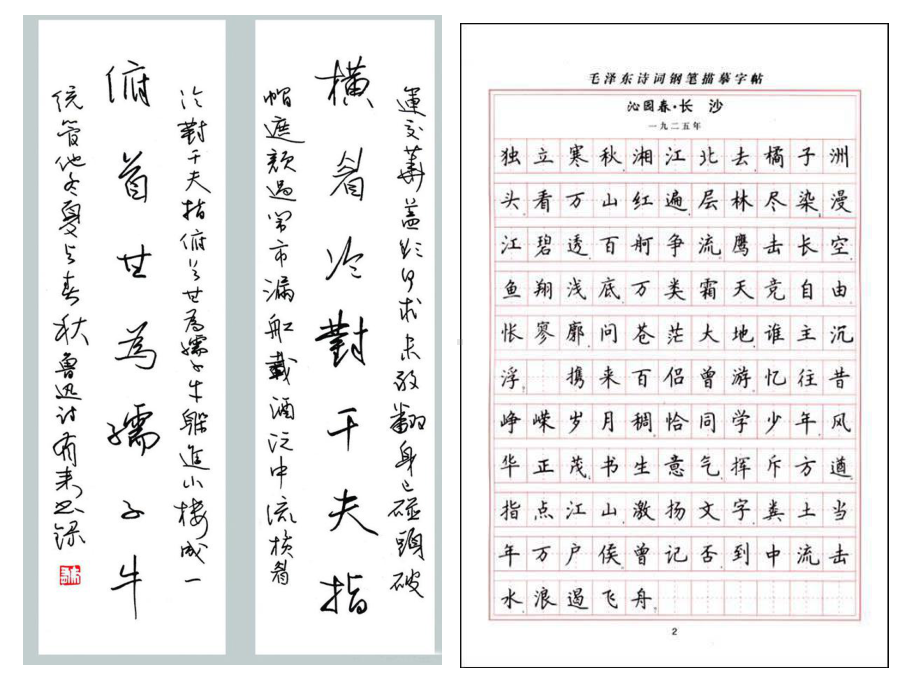 運交華蓋欲何求未敢翻身已碰頭破
横眉冷對千夫指
帽遮顏過鬧市漏船載酒泛中流横眉
冷對千夫指俯首甘為孺子牛躲進小樓成一
俯首甘為孺子牛
统管他冬夏与春秋魯迅詩
毛泽东诗词钢笔描摹字帖
沁园春·长 沙
一九二五年
独立寒秋湘江北去橘子洲
头看万山红遍层林尽染漫
江碧透百舸争流鹰击长空
鱼翔浅底万类霜天竞自由
怅寥廓问苍茫大地谁主沉
浮 携来百侣曾游忆往昔
峥嵘岁月稠恰同学少年风
华正茂书生意气挥斥方遒
指点江山激扬文字粪土当
年万户侯曾记否到中流击
水浪遏飞舟
2